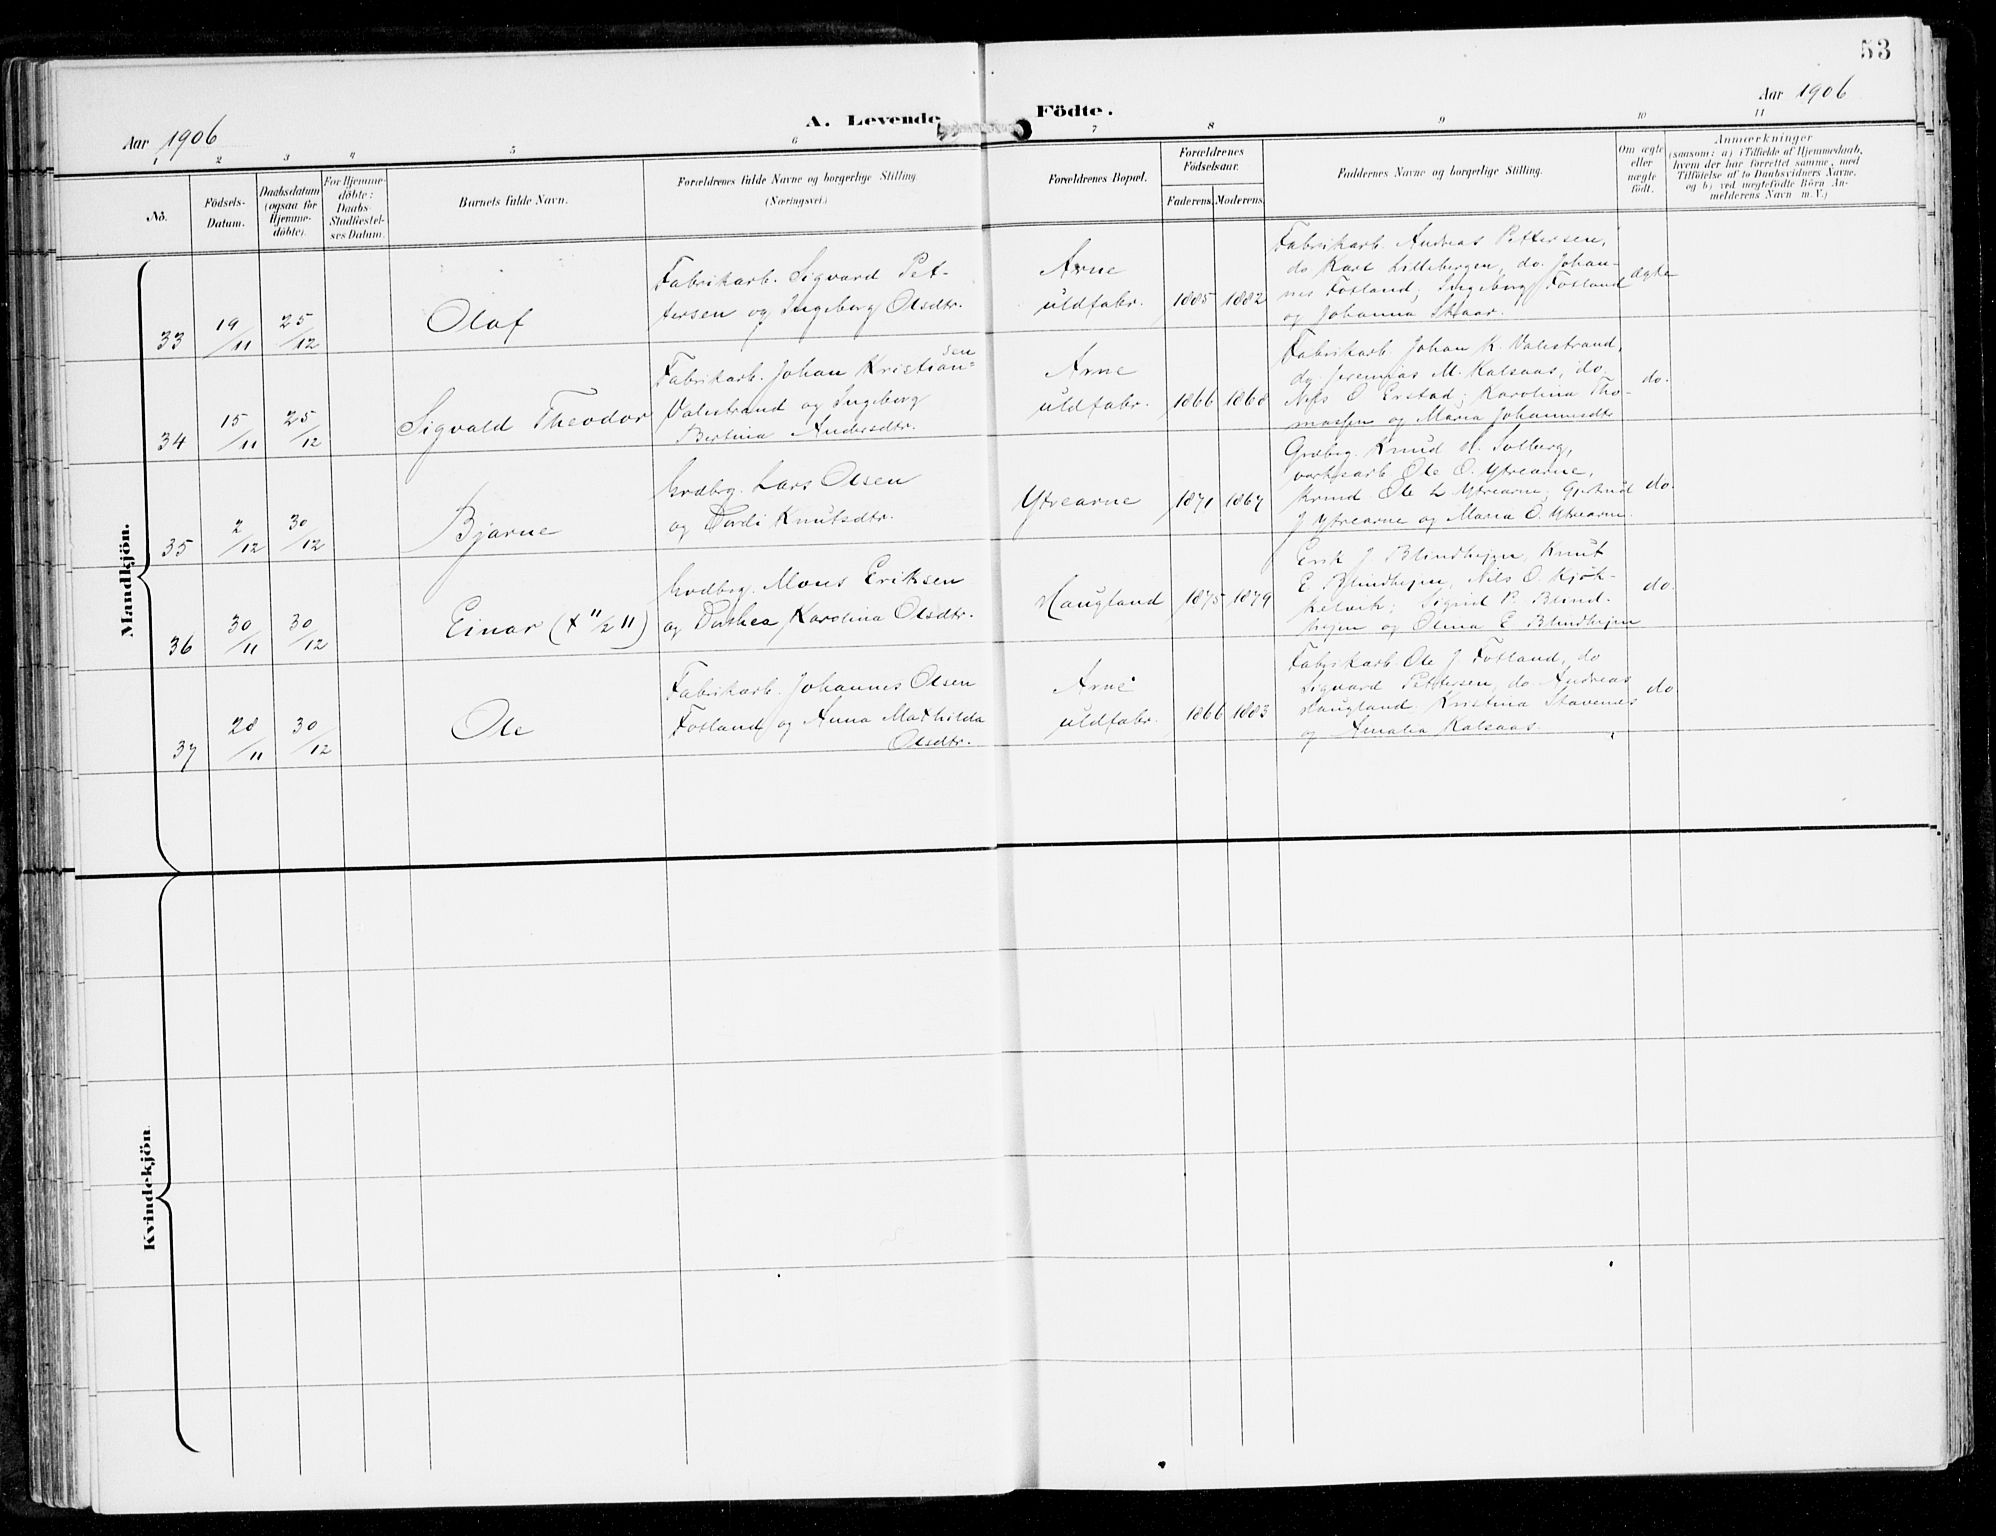 53
Aar 1906
A. Levende Födte.
Aar 1906
1 2 3 4 5 6 7 8 9 10 11
No.
Födsels-
Datum.
Daabsdatum
(ogsaa for
Hjemme-
döbte).
For Hjemme-
döbte:
Daabs-
Stadfæstel-
ses Datum.
Barnets fulde Navn.
Forældrenes fulde Navne og borgerlige Stilling
(Næringsvei.)
Forældrenes Bopæl.
Forældrenes
Födselsaar.
Faderens. Moderens.
Faddernes Navne og borgerlige Stilling.
Om ægte
eller
uægte
födt.
Anmærkninger
(saasom: a) i Tilfælde af Hjemmedaab,
hvem der har forrettet samme, med
Tilföielse af to Daabsvidners Navne,
og b) ved uægtefödte Börn An-
melderens Navn m. V.)
Mandkjön.
33
19/11
25/12
Olaf
Fabrikarb. Sigvard Pet-
tersen og Ingeborg Olsdtr.
Arne
uldfabr.
1885 1882
Fabrikarb. Andreas Pettersen,
do Karl Lillebergen, do. Johan-
nes Fotland, Ingeborg Fotland
og Johanna Skaar.
ægte
34
15/11
25/12
Sigvald Theodor
Fabrikarb. Johan Kristian-
sen
Valestrand og Ingeborg
Bertina Andersdtr.
Arne
uldfabr.
1866 1868
Fabrikarb. Johan K. Valestrand,
do. Jeremias M. Kalsaas, do
Nils O Erstad; Karolina Tho-
massen og Maria Johannesdtr
do.
35
2/12
30/12
Bjarne
Grdbrg. Lars Olsen
og Dordi Knutsdtr.
Ytrearne
1871 1867
Grdbrg. Knud N. Solberg,
verksarb Ole O. Ytrearne,
Ole L Ytrearne; Gjertrud
J Ytrearne og Maria O. Ytrearne.
do.
36
30/11
30/12
Einar (+ 11/2 11)
Grdbrg. Mons Eriksen
og Dorthea Karolina Olsdtr.
Haugland
1875 1879
Erik J. Blindhejm, Knut
E Blindhejm, Nils O. Kjök-
kelvik; Sigrid P. Blind-
hejm og Olina E Blindhejm
do.
37
28/11
30/12
Ole
Fabrikarb. Johannes Olsen
Fotland og Anna Mathilda
Olsdtr.
Arne
uldfabr.
1866 1883
Fabrikarb. Ole J. Fotland, do
Sigvard Pettersen, do. Andreas
Haugland. Kristina Stavenes
og Amalia Kalsaas.
do.
Kvindekjön.